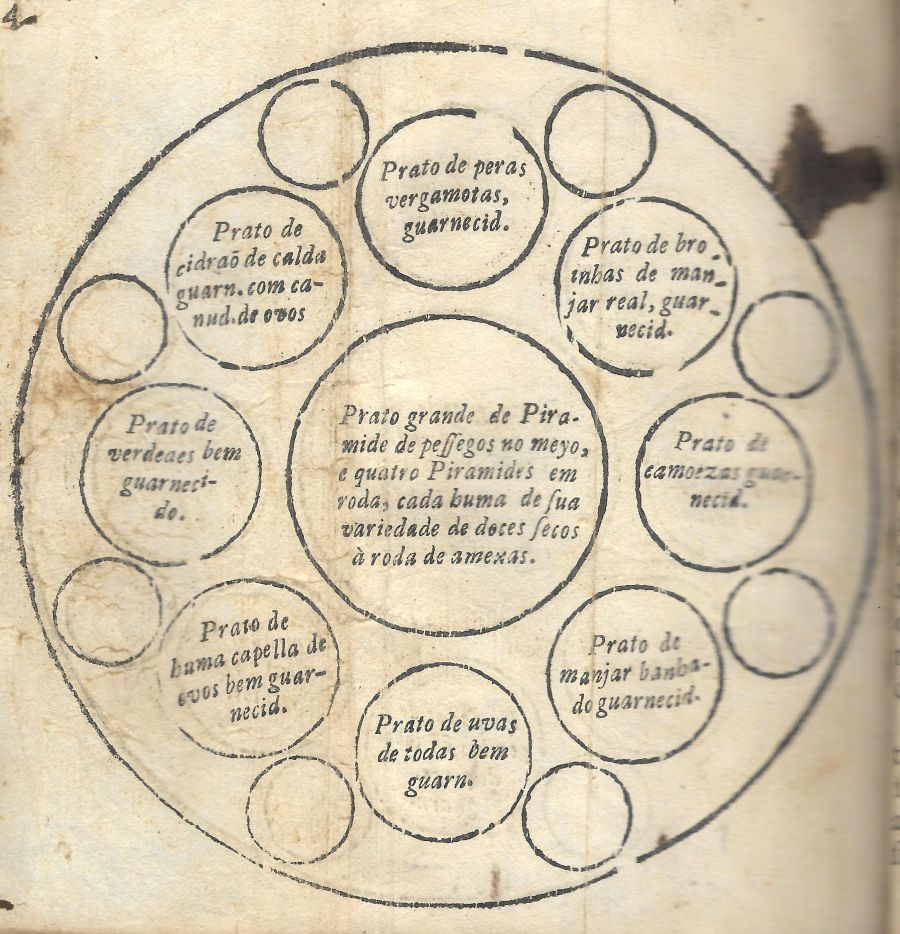 4
Prato de peras
vergamotas,
guarnecid.
Prato de bro-
inhas de man-
jar real, guar-
necid.
Prato de
camoezas guar-
necid.
Prato de
manjar banha-
do guarnecid.
Prato de uvas
de todas bem
guarn.
Prato de
huma capella de
ovos bem guar-
necid.
Prato de
verdeaes bem
guarneci-
do.
Prato de
cidraõ de calda
guarn. com ca-
nud. de ovos
Prato grande de Pira-
mide de peſſegos no meyo,
e quatro Piramides em
roda, cada huma de ſua
variedade de doces ſecos
à roda de amexas.